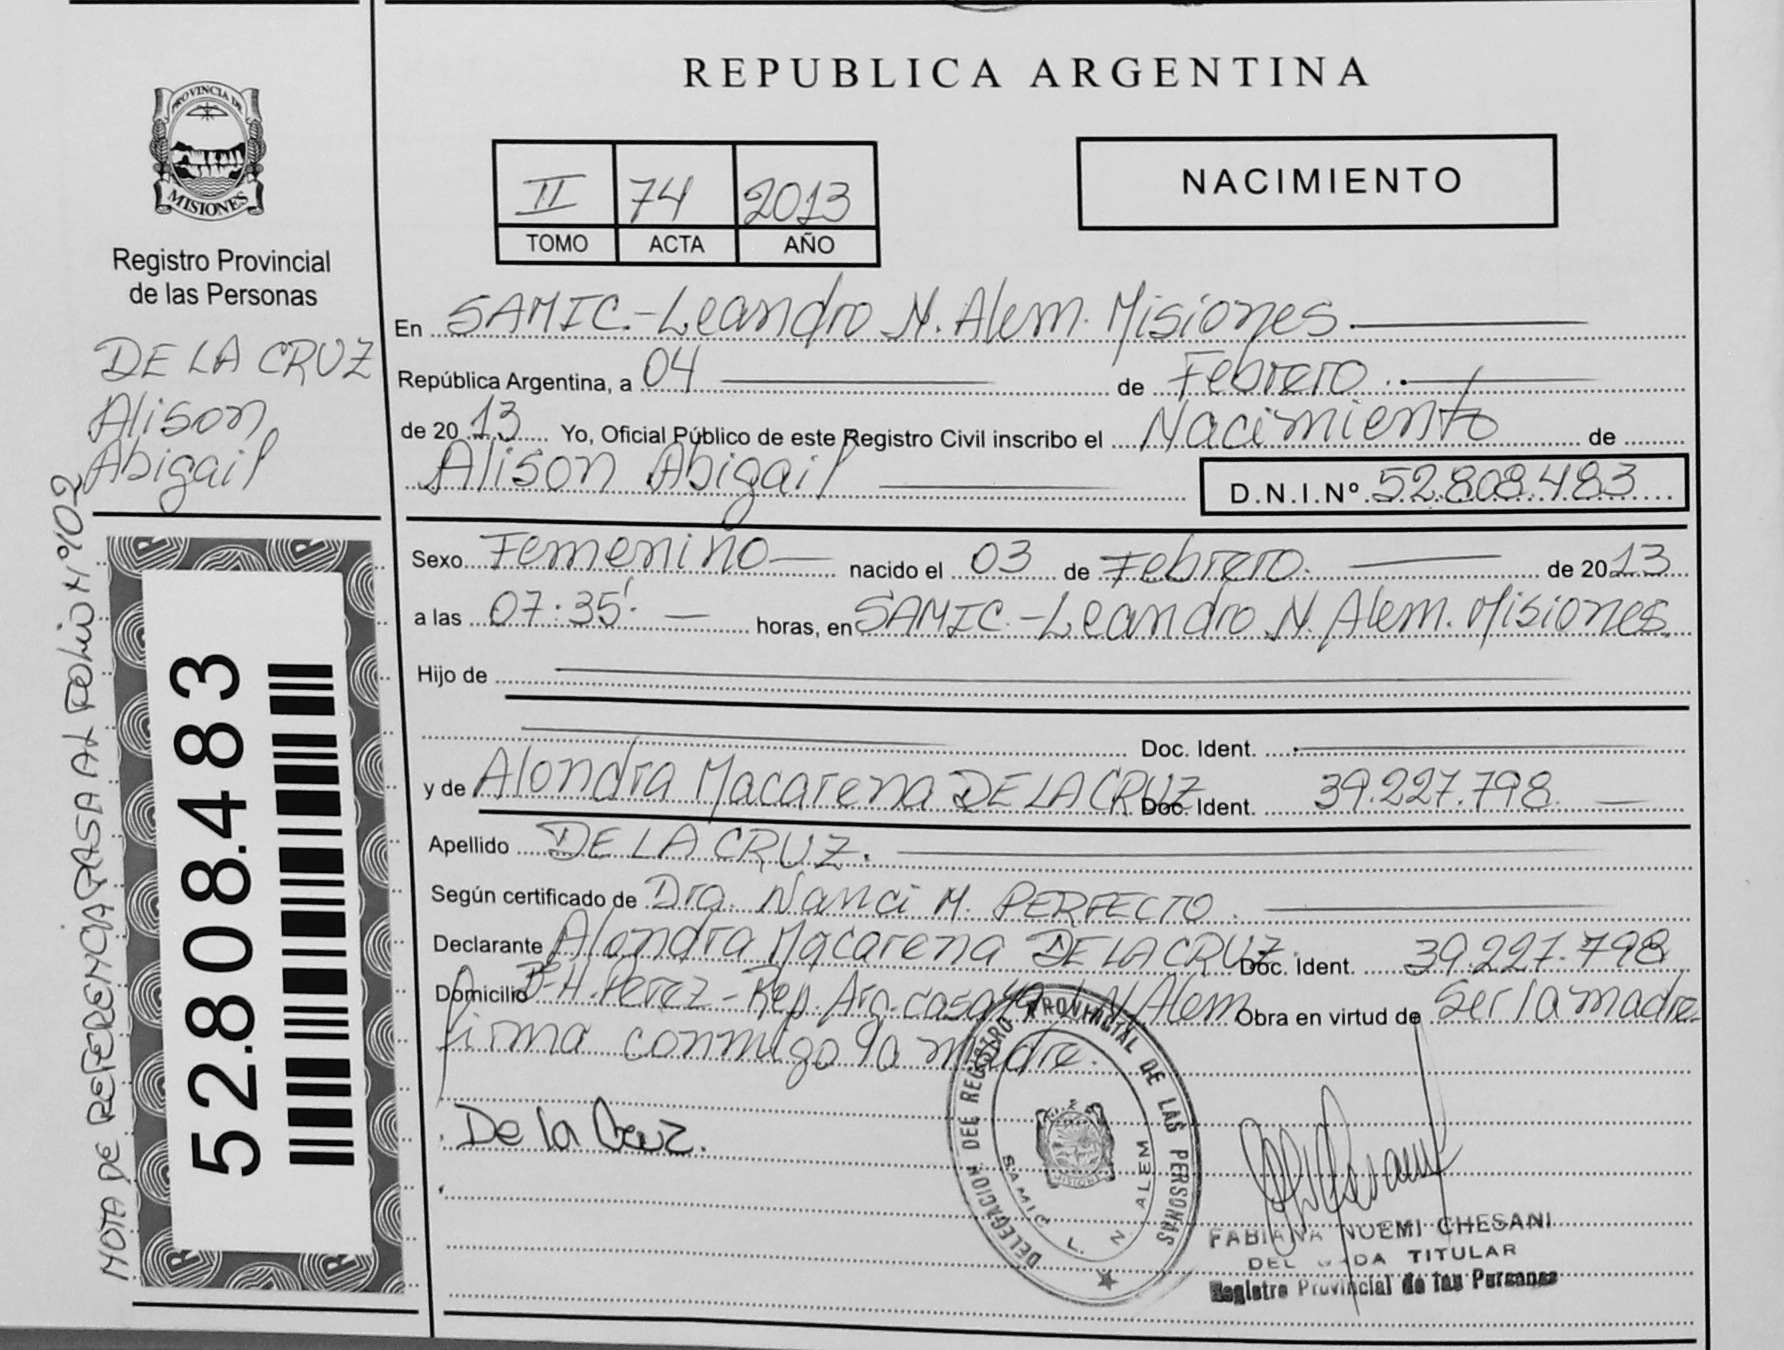 REPUBLICA ARGENTINA
PROVINCIA DE
MISIONES
Registro Provincial
de las Personas
DE LA CRUZ
Alison
Abigail
NOTA DE REFERENCIA PASA AL FOLIO Nº 102
52.808.483
II 74 2013
TOMO ACTA AÑO
NACIMIENTO
En SAMIC.-Leandro N. Alem. Misiones.
República Argentina, a 04 de Febrero
de 2013 Yo, Oficial Público de este Registro Civil inscribo el Nacimiento de
Alison Abigail D.N.I.Nº 52.808.483
Sexo Femenino nacido el 03 de Febrero. de 2013
a las 07:35' horas, en SAMIC.-Leandro N. Alem. Misiones.
Hijo de
Doc. Ident.
y de Alondra Macarena DE LA CRUZ Doc. Ident. 39.227.798
Apellido DE LA CRUZ.
Según certificado de Dra. Nanci M. PERFECTO.
Declarante Alondra Macarena DE LA CRUZ. Doc. Ident. 39.227.798
Domicilio Bº H. Perez - Rep. Arg. casa L. N. Alem Obra en virtud de Ser la madre
firma conmigo la madre.
De la Cruz.
DELEGACION DEL REGISTRO PROVINCIAL DE LAS PERSONAS
SAMIC L. N. ALEM
MISIONES
FABIANA NOEMI CHESANI
DELEGADA TITULAR
Registro Provincial de las Personas